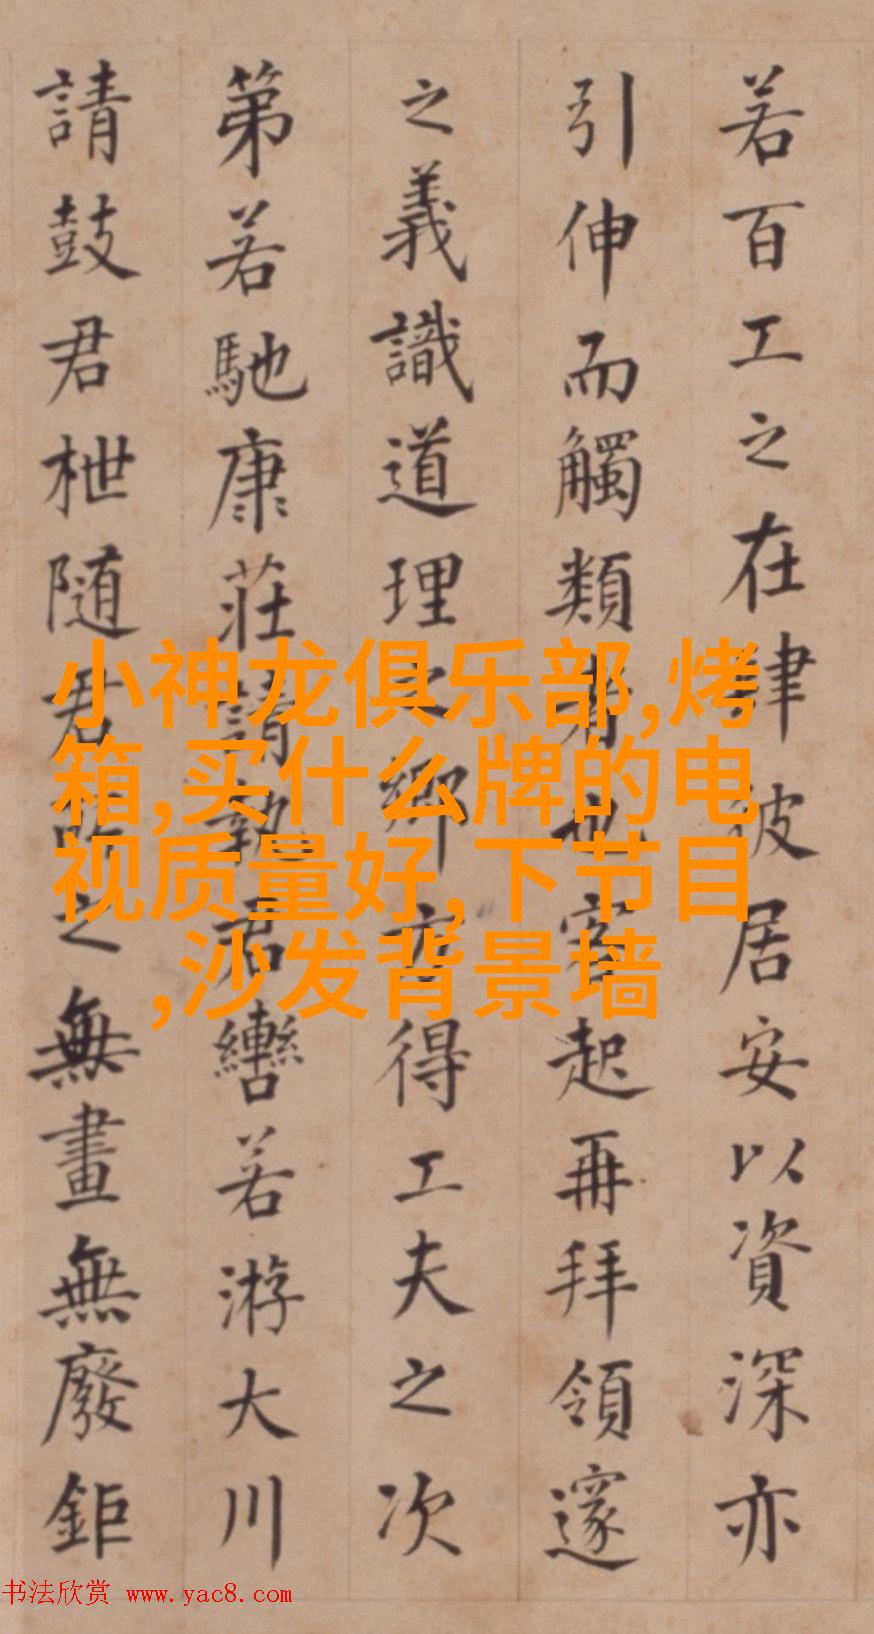 若百工之在肆彼居安以資深亦
引伸而觸類者也客起再拜領邃
之義識道理之鄉方得工夫之次
第若馳康莊請執君轡若游大川
請鼓君枻随君所之無畫無廢鉅
小神龙俱乐部,烤
箱,买什么牌的电
视质量好,下节目
,沙发背景墙
书法欣赏 www.yac8.com